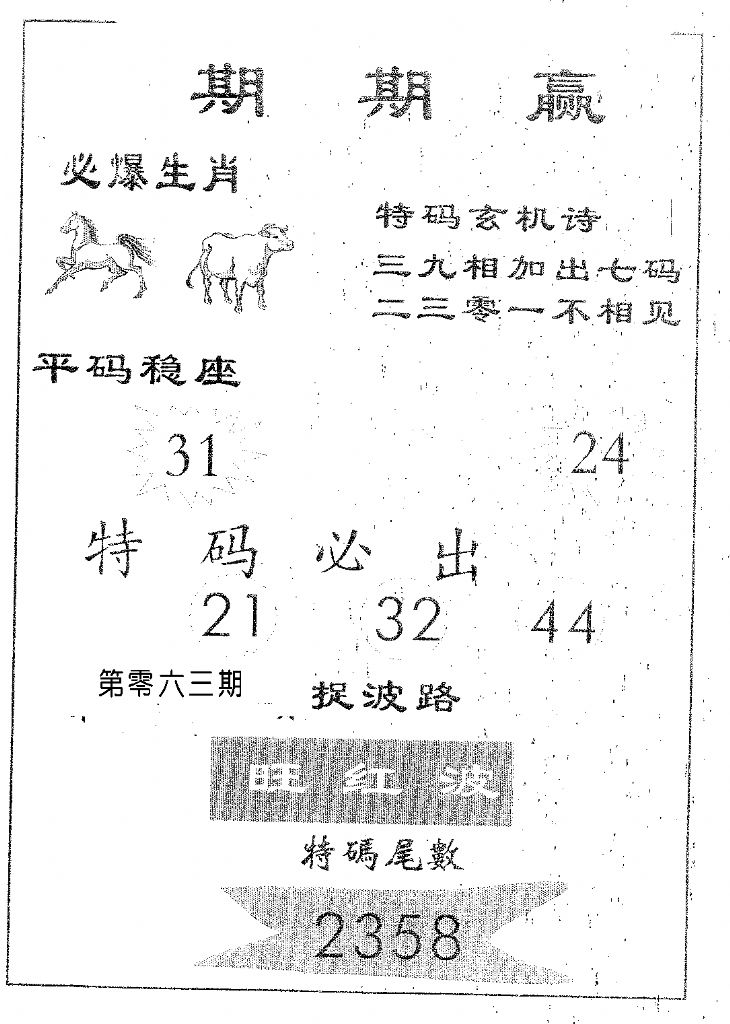 期期赢
必爆生肖
特码玄机诗
三九相加出七码
二三零一不相见
平码稳座
31 24
特码必出
21 32 44
第零六三期
捉波路
旺红波
特碼尾數
2358